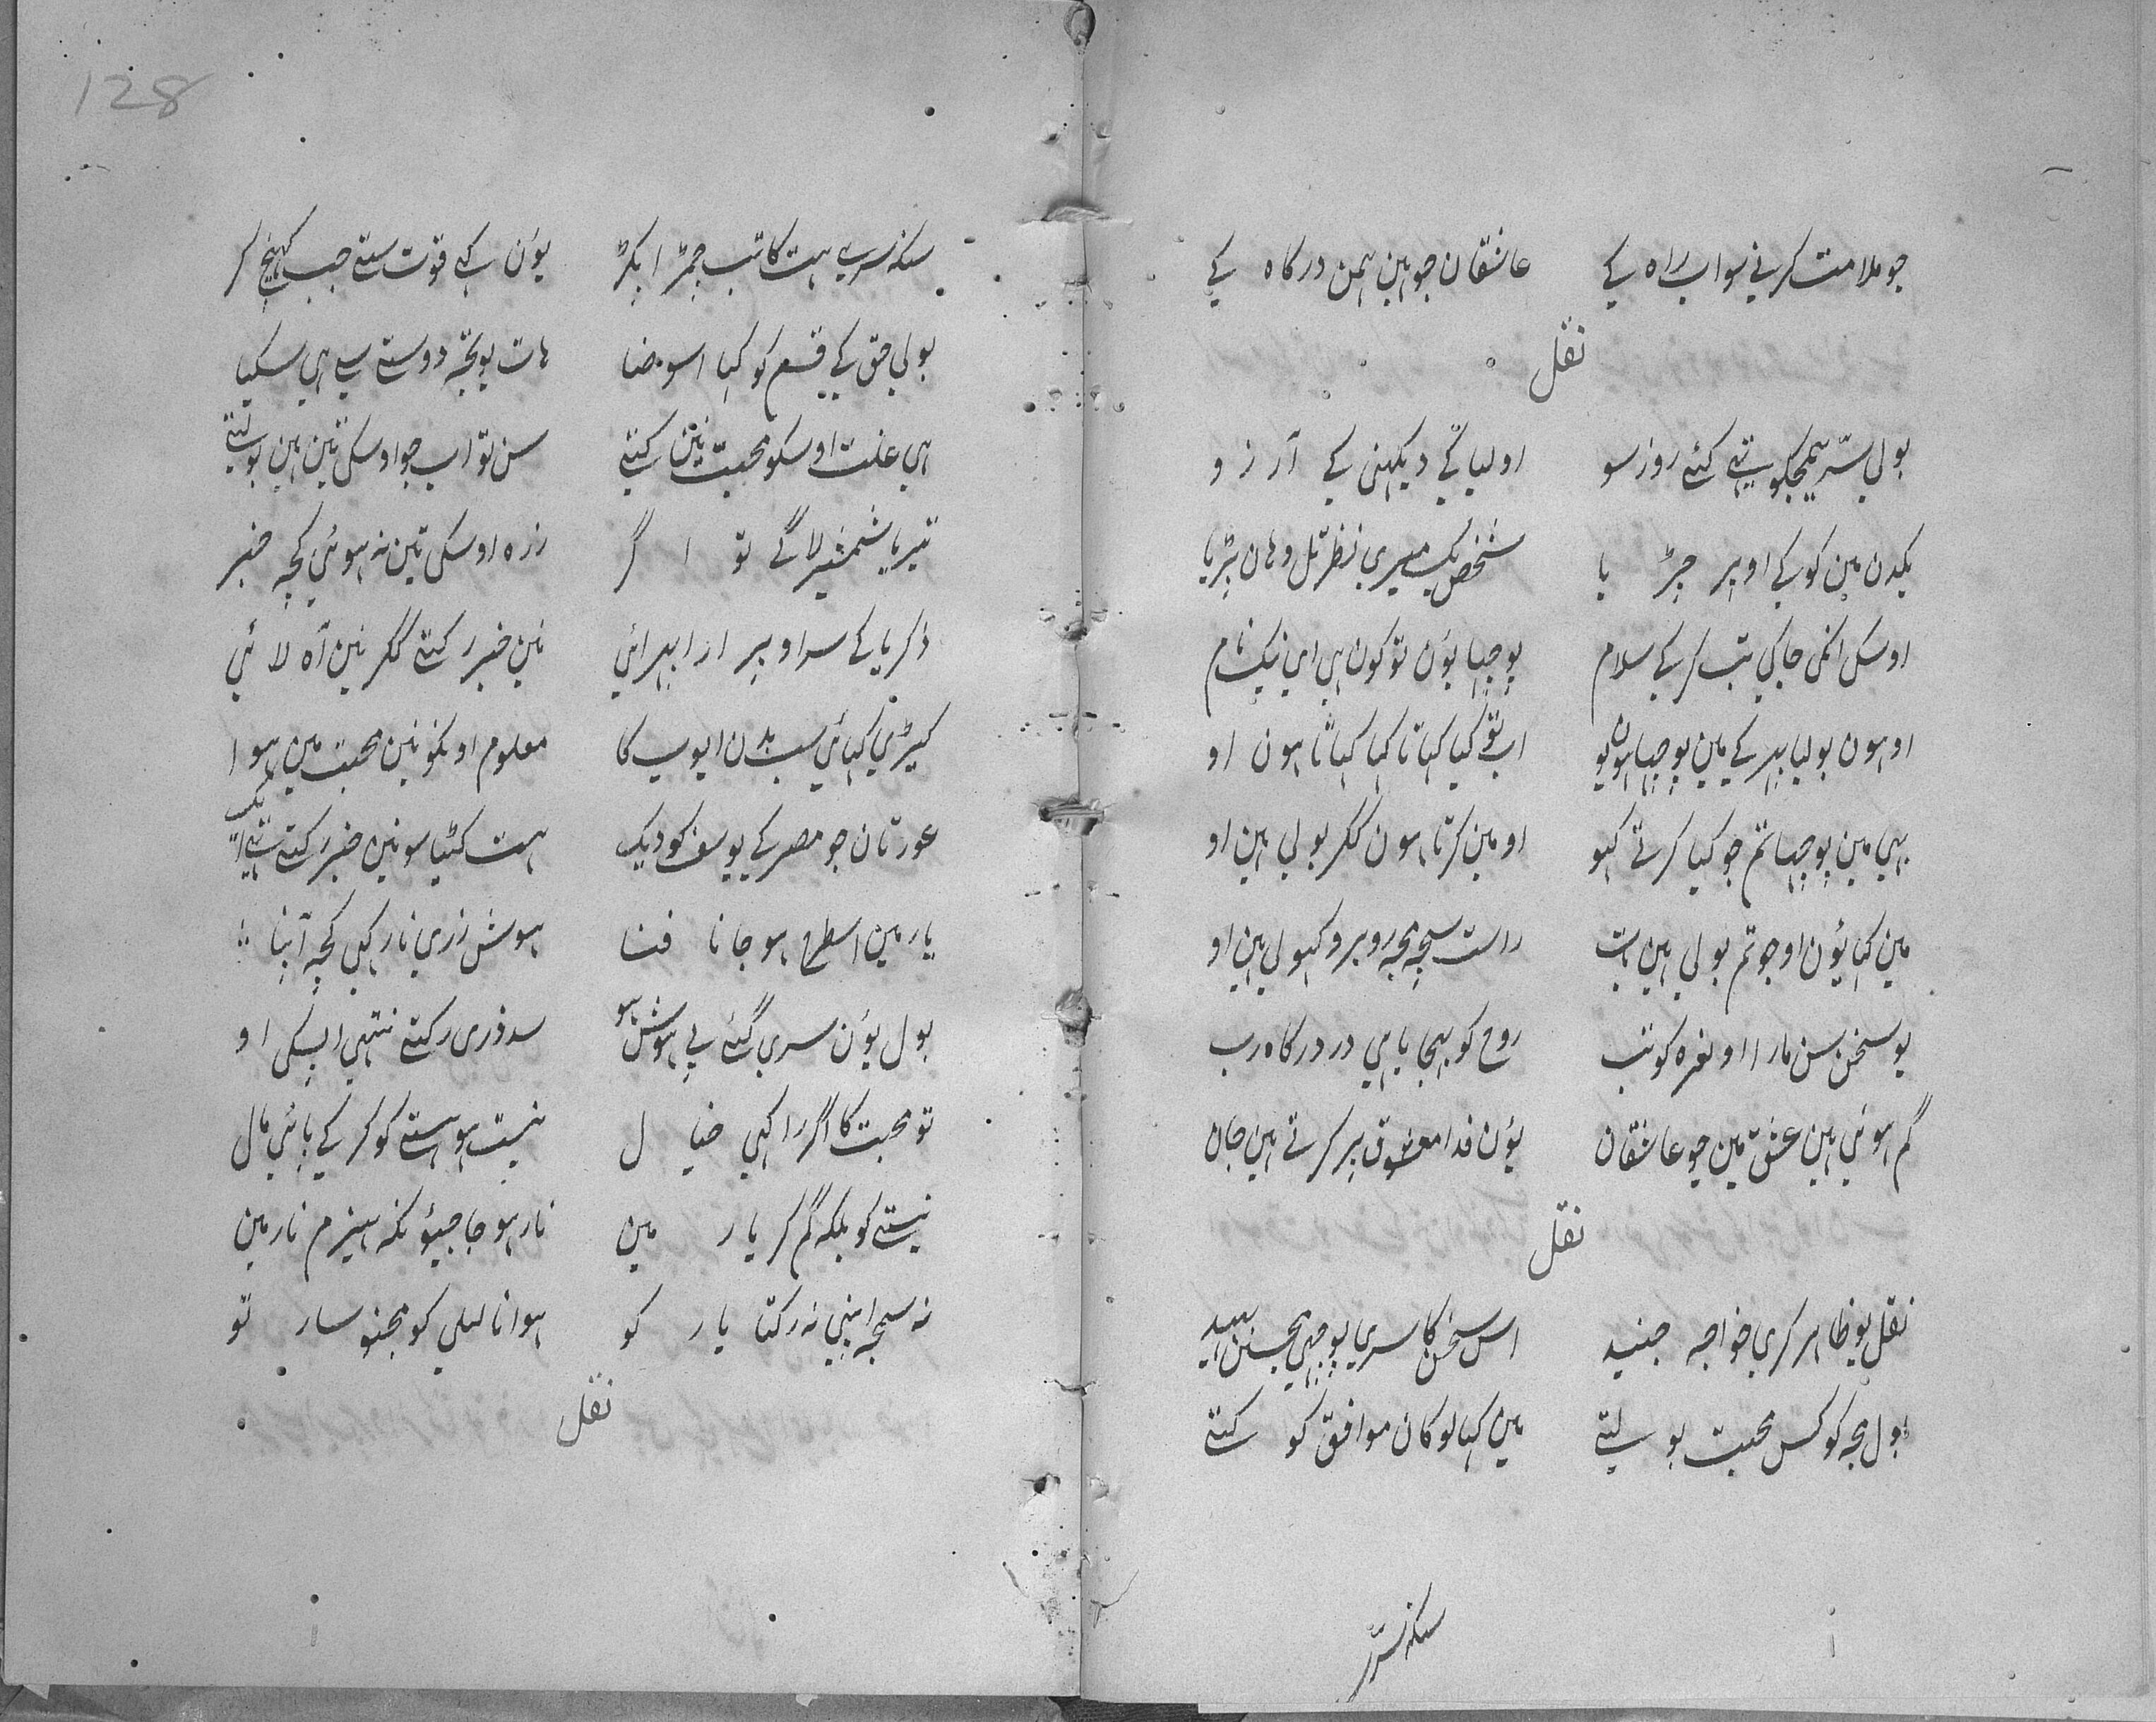 جو ملامت کرنی سو اب راہ کے عاشقان جو ہین ہمن درکاہ کے
نقل
بولی سرّ یجکوتہی کئے روز سو اولیا کے دیکہنی کے آرزو
یکدن مین کوکے اوپر چڑ یا شخص یک میری نظر تل وہان پڑیا
اوسکی انکی جاکی تب کرکے سلام پوچہا یوُن تو کون ہی ای نیک نام
اوہون بولیا پہر کے مین پوچہا ہون یو اب تو کیا کہاتا کہا کہاتا ہون او
پہی مین پوچہا تم جو کیا کرتے کہو او مین کرتا ہون ککر بولی ہین او
مین کہا یوُن او جو تم بولی ہین بات راست سچہ مجہ روبرو کہولی ہین او
یو سخن سن مارا او نعرہ کو تب روح کو بہیجا ہی در درکاہ رب
گم ہوئی ہین عشق مین جو عاشقان یوُن فدا معشوق پر کرتے ہین جان
نقل
نقل یو ظاہر کری خواجہ جنید اس سخن کا سری پوچہی مجسن
بول مجہ کو کس محبت بولتے مین کہا لوکان موافق کو کتے
سنکہ سرّ
128
سنکہ سری ہت کا تب چمڑا پکڑ یوُن کہے قوت ستے جب کہینچ کر
بولی حق کے قسم کو کہا اسو ضا ہات پوپخہ دوستے سے ہی سکیا
ہی علت اوسکو محبت نین کتے سن تو اب جو اوسکی تین ہین بولتے
تیر یا شمشیر لاگے تو اگر زرہ اوسکی تین نہ ہوئی کچہ خبر
ذکریا کے سر اوپر ارا پہرائی نین خبر رکتے ککر نین آہ لائی
کیڑی کہائی سب بدن ایوب کا معلوم اونکو نین محبت مین ہوا
عورتان جو مصر کے یوسف کو دیک ہت کٹیا سو نین خبر رکتے تہیان یک
یار مین اسطرح ہو جانا فنا ہوش زری نا رکہی کچہ آپنا
بول یوُن سری گئے بی ہوش ہو سد ذری رکتے نتہی اپسکی او
تو محبت کا اگر راکہی خیال نیست ہو ہستے کو کرکے پائی مال
نیستے کو بلکہ گم کر یار مین نار ہو جا جیوُنکہ ہیزم نار مین
نہ سمجہ اپنی نہ رکتا یار کو ہوانا لیلی کو مجنو سار تو
نقل